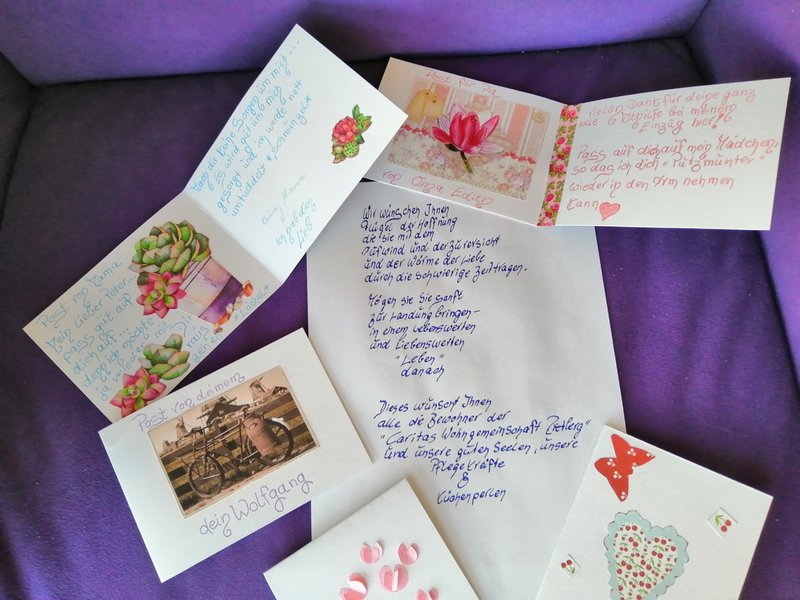 Mach dir keine Sorgen um mich...
Es wird gut um mich
gesorgt und ich werde nett
Deine Mama
Ich hab dich
lieb
Post von Mama
Mein lieber Peter
pass gut auf
dich auf
denn ich möchte
ja
mit Dir
Post für Pa
von Oma Edith
Vielen Dank für deine ganz
tolle Mithilfe bei meinem
Einzug hier!
Pass auf dich auf mein Mädchen,
so das ich dich "Putzmunter"
wieder in den Arm nehmen
kann
Wir wünschen Ihnen
Flügel der Hoffnung
die sie mit dem
Aufwind und der Zuversicht
und der Wärme der Liebe
durch die schwierige Zeit tragen.
Mögen sie Sie sanft
zur Landung bringen –
in einem Lebenswerten
und Liebenswerten
"Leben"
danach
Dieses wünscht Ihnen
alle die Bewohner der
"Caritas Wohngemeinschaft Rietberg"
und unsere guten Seelen, unsere
Pflegekräfte
&
Küchenperlen
Post von deinem
dein Wolfgang